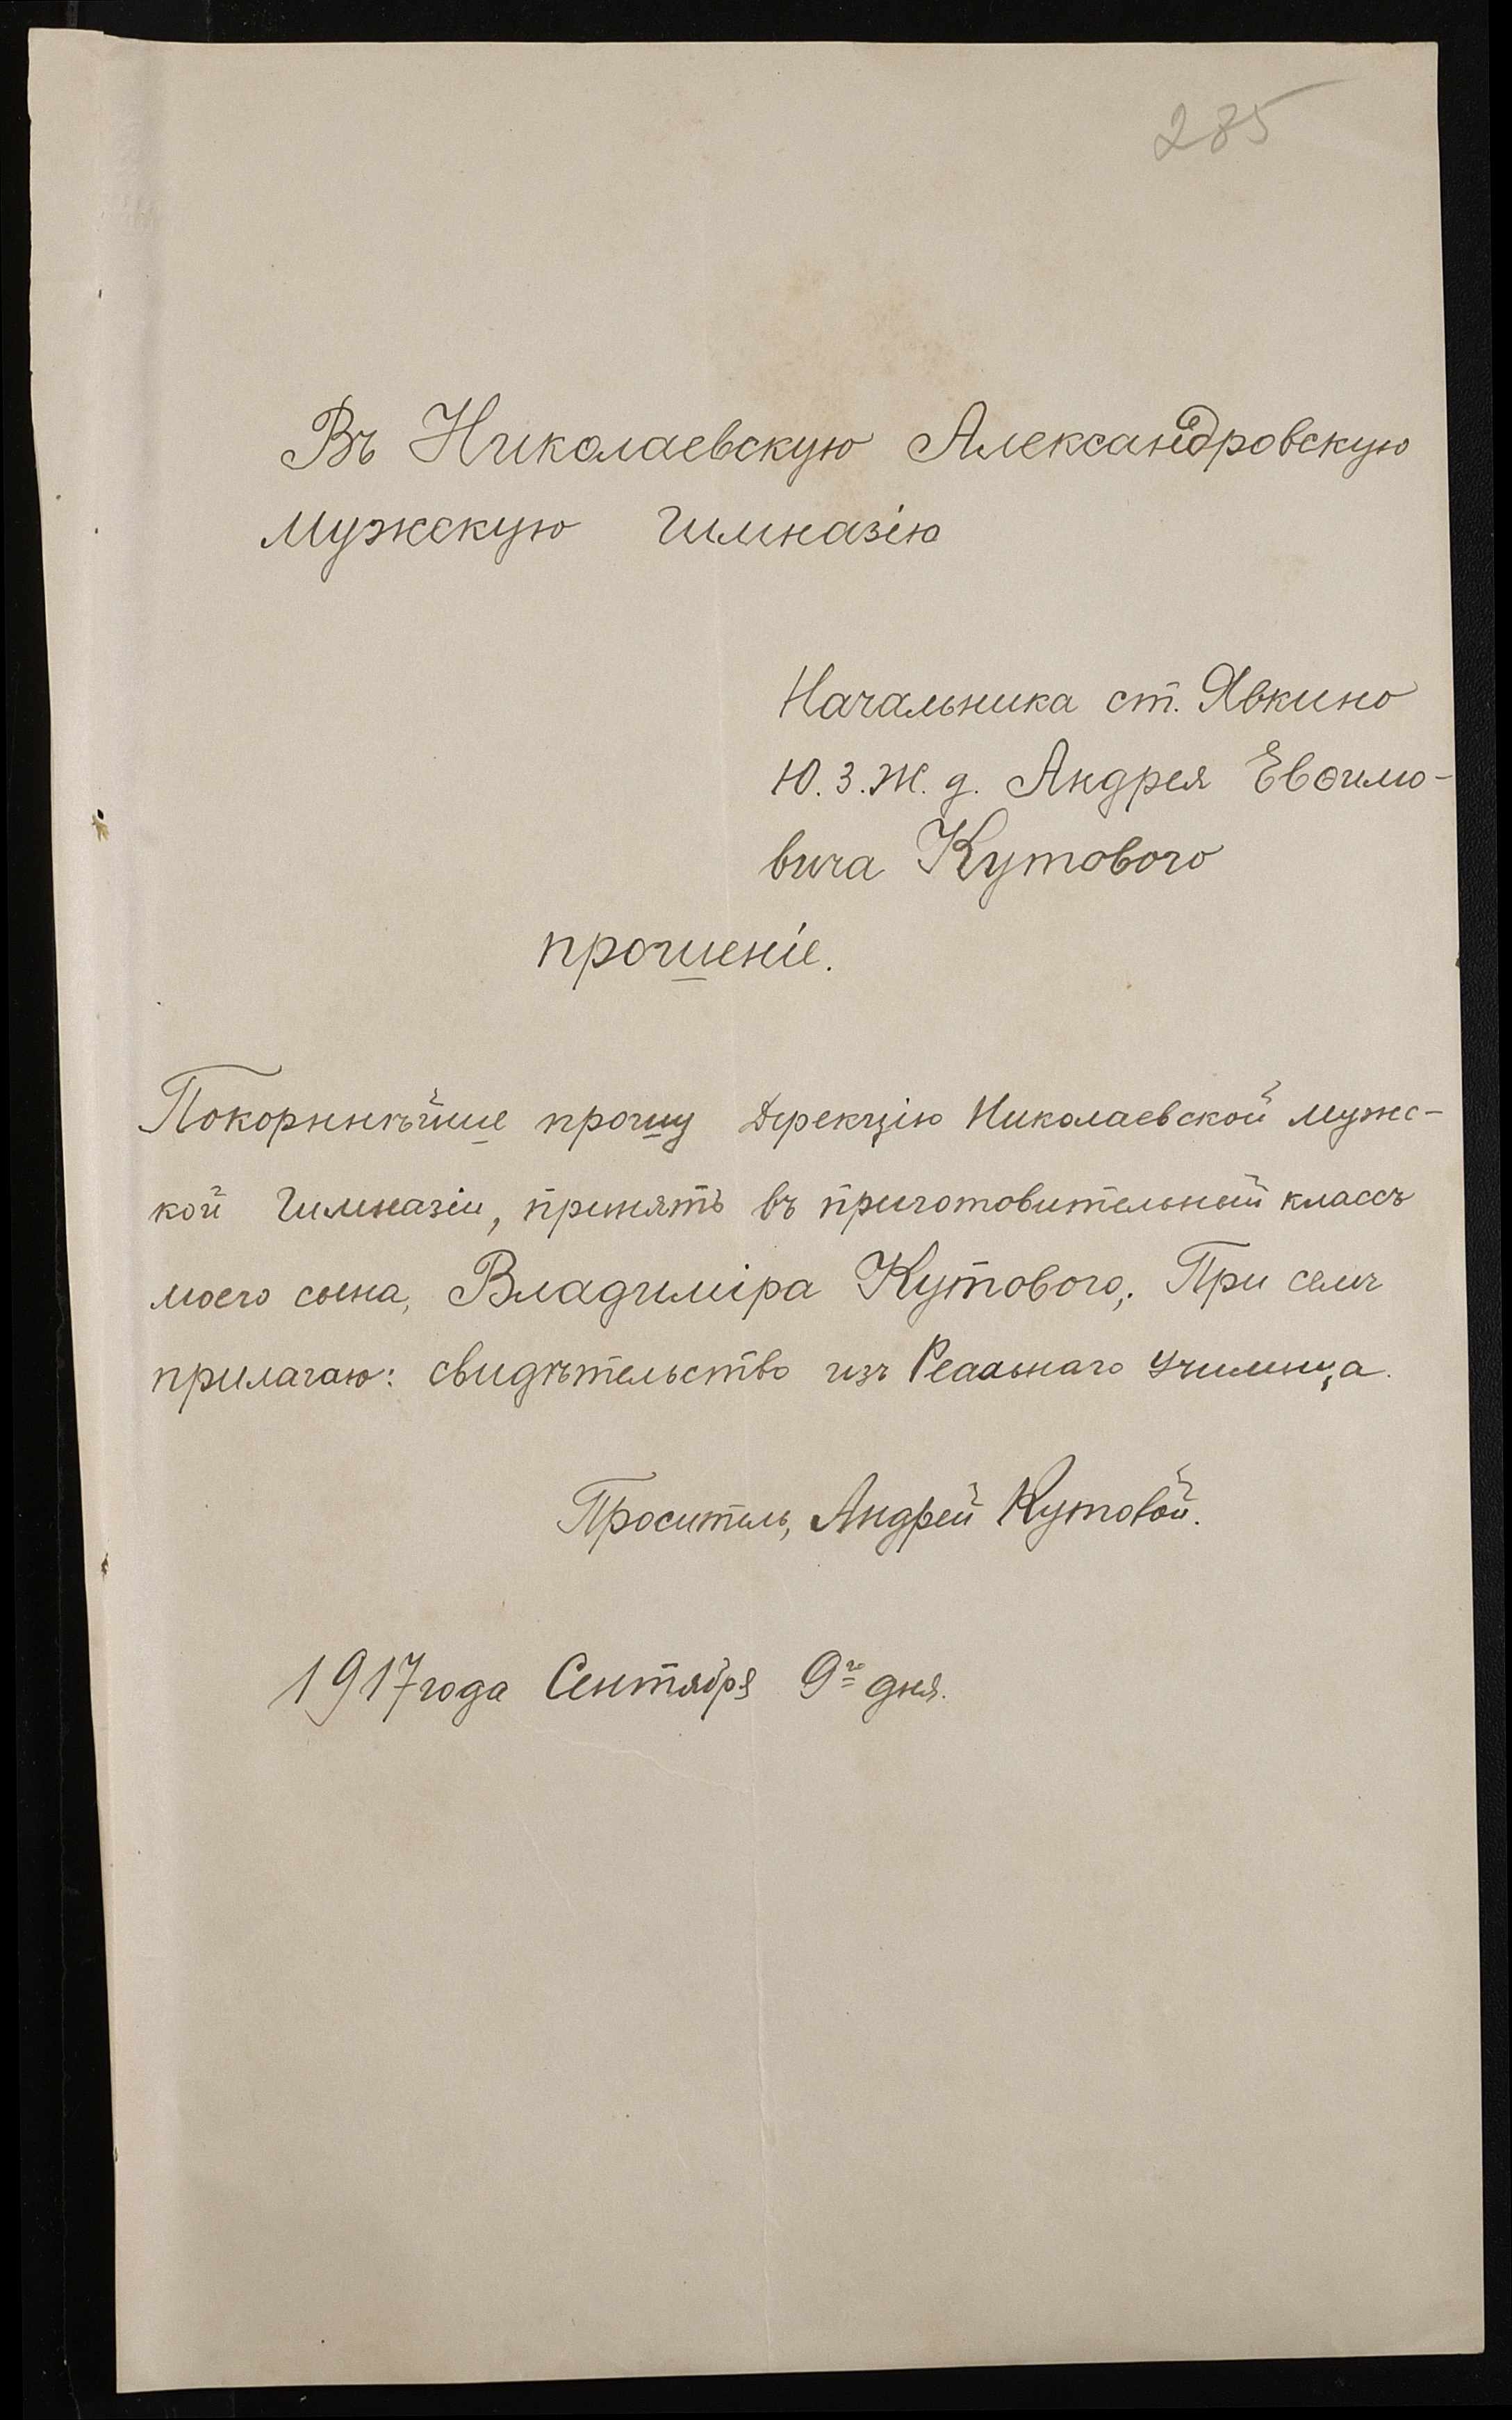 285
Въ Николаевскую Александровскую
Мужскую Гимназію
Начальника ст. Явкино
Ю. З. Ж. д. Андрея Евѳимо-
вича Кутового
прошеніе.
Покорннѣйше прошу Дерекцію Николаевской мужс-
кой Гимназіи, принять въ приготовительный классъ
моего сына, Владиміра Кутового; При семъ
прилагаю: свидѣтельство изъ Реальнаго Училища.
Проситель, Андрей Кутовой.
1917 года Сентября 9го дня.